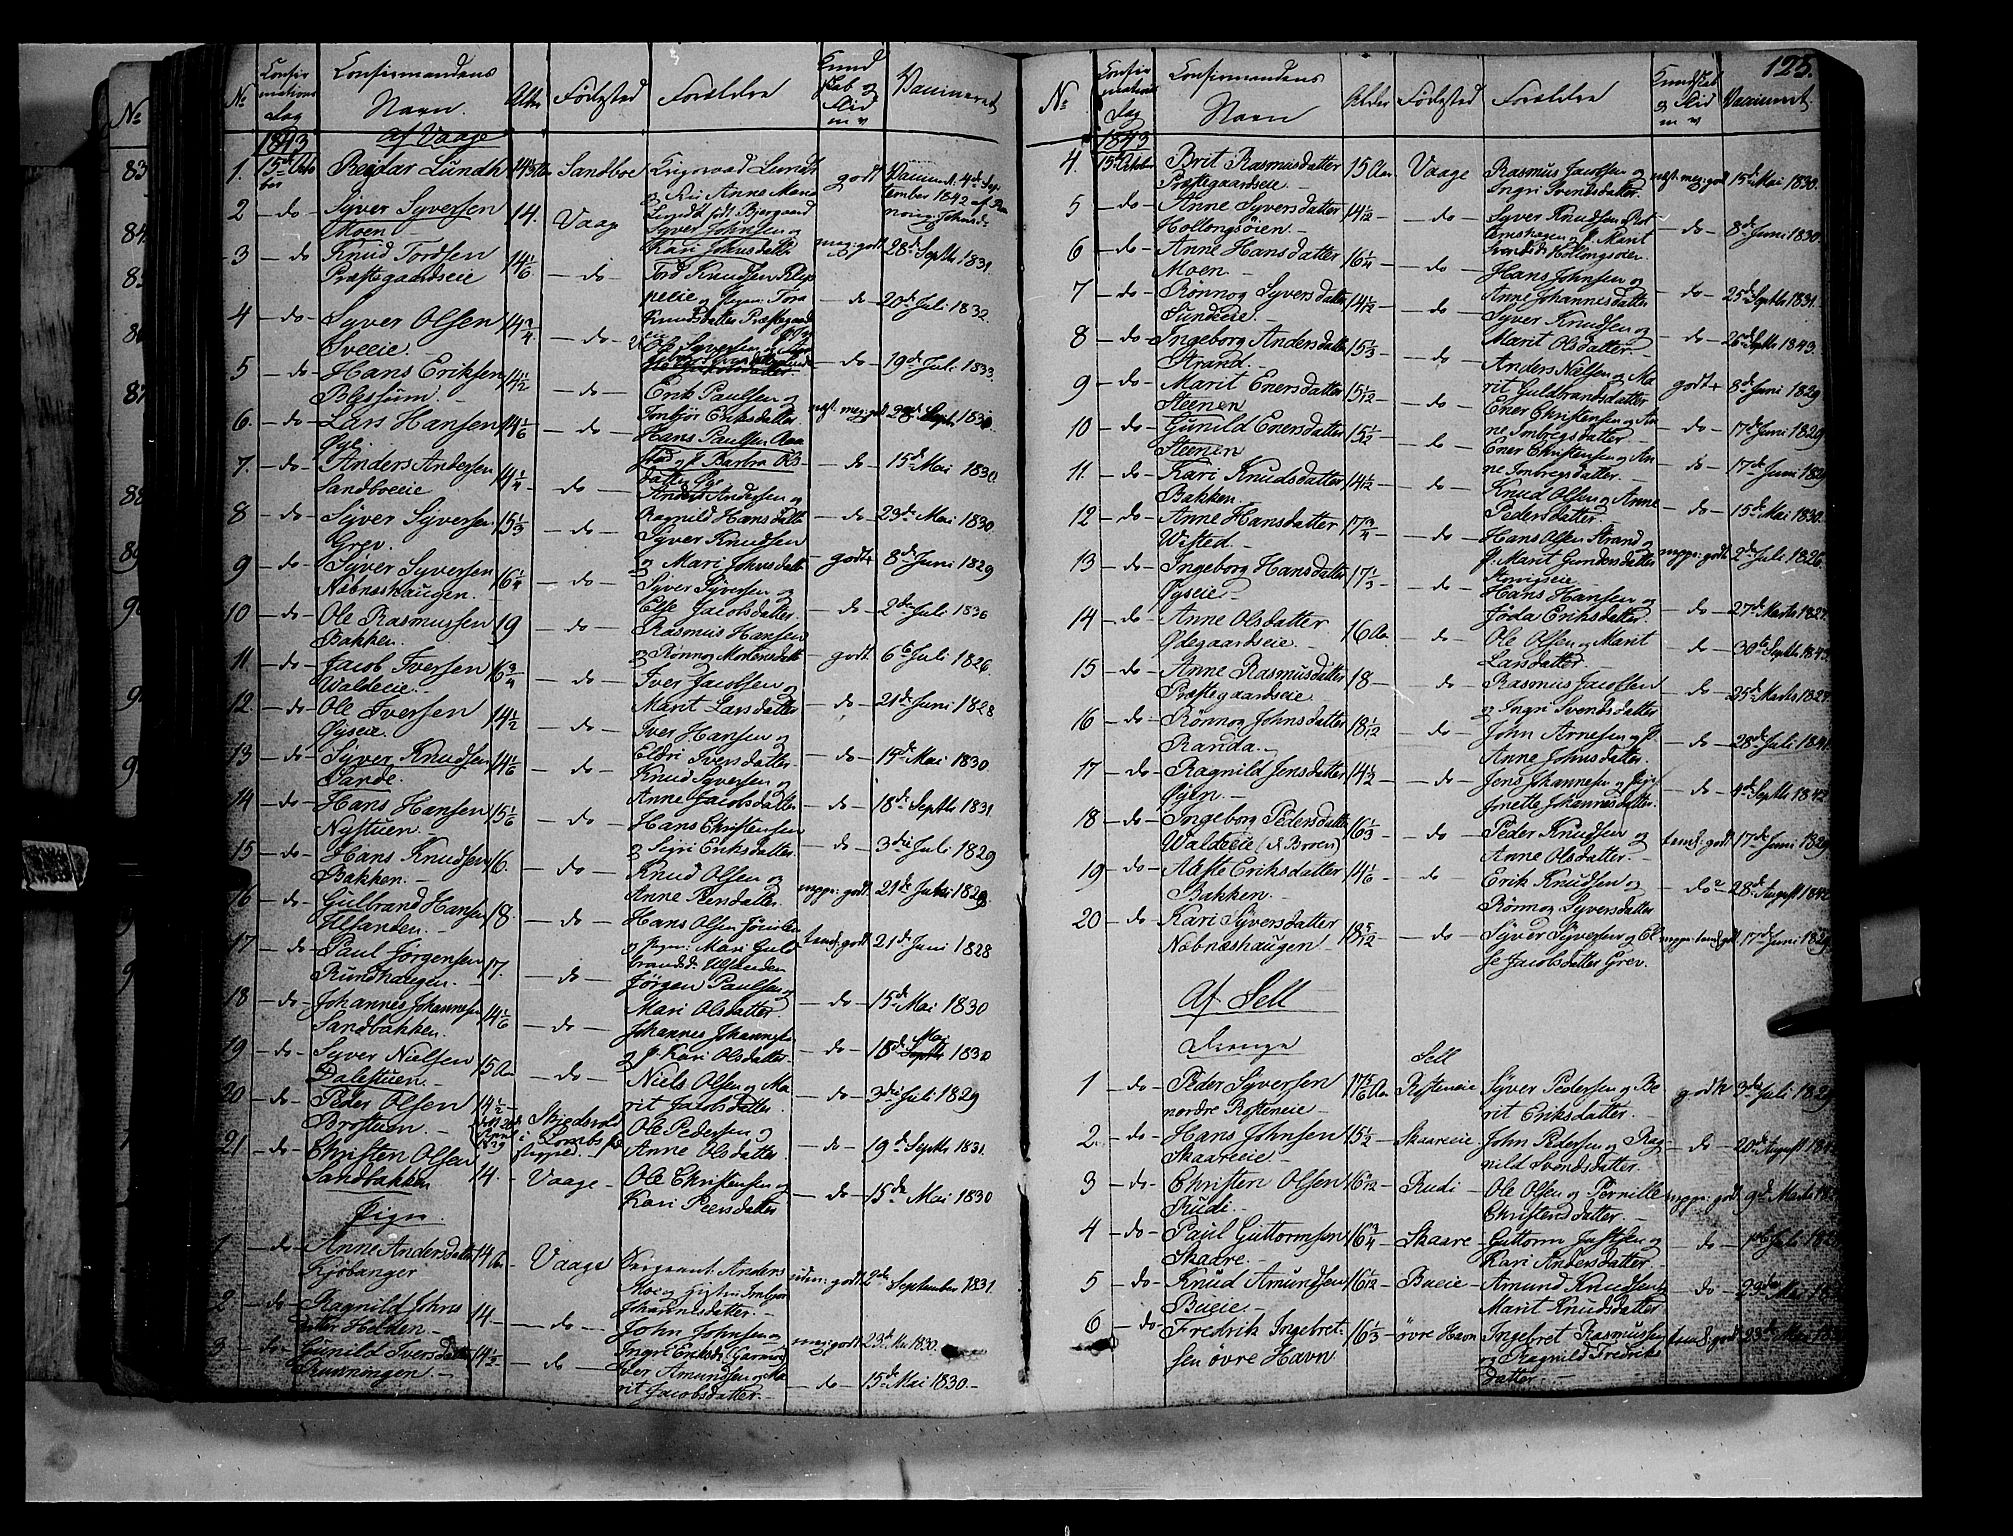 Confir
mations
Dag
Confirmandens
Navn.
Alder
Fødested
Forældre
Kund
skab og
Flid
m v
Vaccineret
No
1843
af Vaage
1. 15de Octo
ber
Reidar Lundh
14 3/4 Aar
Sandboe
Krigsraad Lundh
og Frue Anne Maria
Lundh født Bjergaard
godt
Vaccinert 4de Sep
tember 1842 af
2 - do - Syver Syversen
Moen -
14.
Vaage
Syver Johnsen og
Kari Johnsdatter
meg: godt
28de Septbr 1831.
3 - do - Knud Tordsen
Præstegaardseie
14 1/6
- do
Tord Knudsen
og Pigen Tora
Knudsdatter Præstegaards
eie
- do -
20de Juli 1832.
4 - do - Syver Olsen
Sveeie. -
14 3/4
- do
Ole Syversen
- do -
19de Juli 1833.
5 - do - Hans Eriksen
Blessum. -
14 1/2
- do
Erik Paulsen og
Imbjør Eriksdatter.
næst. meg: godt
28de Septbr 1830.
6. - do - Lars Hansen
Øye
14 1/6
- do -
Hans Paulsen
og P Barbra Ols
datter Øye
- do -
15de Mai 1830.
7. - do - Anders Andersen
Sandboeeie
14 1/4
- do -
Anders Andersen og
Ragnild Hansdatter
- do -
23de Mai 1830.
8 - do - Syver Syversen
Grev.
15 1/3
- do -
Syver Knudsen
og Mari Johnsdatter
godt+
8de Juni 1829
9 - do - Syver Syversen
Næbnæshaugen. -
16 1/4
- do -
Syver Syversen og
Else Jacobsdatter.
- do -
2den Juli 1836
10 - do - Ole Rasmussen
Bakken.
19
- do -
Rasmus Hansen
og Rønnog Mortensdatter
godt.
6te Juli 1826.
11. - do - Jacob Iversen
Waldeeie. -
16 3/4
- do -
Iver Jacobsen og
Marit Larsdatter
- do -
21de Juni 1828
12 - do - Ole Iversen
Øyseie.
14 1/2
- do -
Iver Hansen og
Eldri Iversdatter.
- do -
15de Mai 1830.
13 - do - Syver Knudsen
Sande.
14 1/6
- do -
Knud Syversen og
Anne Jacobsdatter
- do -
18de Septbr 1831.
14 - do - Hans Hansen
Nystuen. -
15 1/6
- do -
Hans Christensen
og Sigri Eriksdatter.
- do -
3die Juli 1829
15 - do - Hans Knudsen
Bakken. -
16.
- do -
Knud Olsen og
Anne
mgpr: godt.
21de Juni 1829
16 - do - Gulbrand Hansen
Ulfsanden. -
18.
- do -
Hans Olsen
og Pigen: Mari Gul
brandsd. Ulfsanden
teml. godt.
21de Juni 1828
17 - do - Paul Jørgensen
Rundhaugen. -
17.
- do -
Jørgen Paulsen og
Mari Olsdatter
- do -
15de Mai 1830
18 - do - Johannes Johannesen
Sandbakken.
14 1/6
- do -
Johannes Johannesen
og P. Kari Olsdatter
- do -
18de Mai 1830
19 - do - Syver Nielsen
Dalestuen. -
15 Aar
- do -
Niels Olsen og Ma
rit Jacobsdatter.
- do -
3die Juli 1829
20 - do - Peder Olsen
Brostuen. -
14 1/2
Skjedsvold
i Lombs
Ole Pedersen og
Anne Olsdatter.
- do -
19de Septbr 1831.
21 - do - Christen Olsen
Sandbakken
14.
- Vaage -
Ole Christensen og
Kari Peersdatter
- do -
15de Mai 1830
Piger.
1 - do - Anne Andersdatter
Kjøbanger
14 Aar
Vaage
Sergeant Anders
Moe og Imbjør
Johannesdatter. -
udm: godt
2den September 1831.
2 - do - Ragnild Johns
datter Holden -
14 -
- do -
John Johnsen og
Ingri Eriksd: Garmoe
meg: godt
23de Mai 1830.
3 - do - Gunild Iversdatter
Runningen. -
14 1/2
- do
Iver Amundsen og Ma
rit Jacobsdatter. -
- do -
15de Mai 1830. -
125.
No
Confir
mations
Dag
Confirmandens
Navn
Alder
Fødested
Forældre
Kundskab
og Flid
m v
Vaccineret.
1843
4. 15de October
Brit Rasmusdatter
Præstegaardseie. -
15 Aar
Vaage
Rasmus Jacobsen og
Ingri Svendsdatter.
næst. meg: godt
15de Mai 1830.
5 - do - Anne Syversdatter
Hollongsøien. -
14 1/2
- do -
Syver Knudsen
og P. Marit
Svendsd: Hollongsøien
- do -
8de Juni 1830.
6 - do - Anne Hansdatter
Moen -
16 1/4
- do
Hans Johnsen og
Anne Johannesdatter
- do -
25de Septbr 1831.
7 - do - Rønnog Syversdatter
Sundeeie. -
14 1/2
- do
Syver Knudsen og
Marit Olsdatter -
- do
26de Septbr 1843.
8 - do - Ingeborg Andersdatter
Strand. -
15 1/3
- do
Anders Nielsen og Ma
rit Guldbrandsdatter
godt+
8de Juni 1829
9 - do - Marit Enersdatter
Steenen
15 1/2
- do
Ener Christensen og An
ne Imbregsdatter. -
- do -
17de Juni 1829
10 - do - Gunild Enersdatter
Steenen
15 1/2
- do
Ener Christensen og An
ne Imbregsdatter.
- do -
17de Juni 1829
11. - do - Kari Knudsdatter
Bakken.
14 1/2
- do
Knud Olsen og Anne
Pedersdatter.
- do -
15de Mai 1830.
12 - do - Anne Hansdatter
Wisted. -
17 3/4
- do
Hans Olsen Strand og
P. Marit Gundersdatter
mgpr: godt
2de Juli 1826.
13 - do - Ingeborg Hansdatter
Øyseie. -
17 1/3
- do
Hans Hansen og
Joda Eriksdatter.
- do -
27de Marts 1827.
14 - do - Anne Olsdatter
Ødegaardseie. -
16 Aar
- do
Ole Olsen og Marit
Larsdatter.
- do
30te Septbr 1843.
15 - do - Anne Rasmusdatter
Præstegaardseie
18 -
do -
Rasmus Jacobsen
og Ingri Svendsdatter
- do
25de Marts 1827.
16 - do - Rønnog Johnsdatter
Randa. -
18 1/12
- do -
John Arnesen og P.
Anne Johnsdatter.
- do -
28de Juli 1841.
17 - do - Ragnild Jensdatter
Øyen. -
14 1/2
- do -
Jens Johannesen og
Johannesdatter.
- do -
4de Septbr 1842.
18 - do - Ingeborg Pedersdatter
Waldeeie (N. Broen)
16 1/3
- do
Peder Knudsen og
Anne Olsdatter. -
teml. godt
17de Juni 1829.
19 - do - Aaste Eriksdatter
Bakken. -
14 1/6
- do -
Erik Knudsen og
Rønnog Syversdatter
- do
28de August 1842
20 - do - Kari Syversdatter
Næbnæshaugen
18 5/12
- do -
Syver Syversen og El
se Jacobsdatter Grev.
mgpr. teml. gdt.
17de Juni 1829.
Af Sell
Drenge
Sell
1 - do - Peder Syversen
nordre Rosteneie -
17 5/6 Aar
Rosteneie
Syver Pedersen og Be
rit Eriksdatter.
godt
3die Juli 1829
2. - do - Hans Johnsen
Skaareeie -
15 1/2
Skaareeie
John Pedersen og Rag
nild Svendsdatter.
- do -
20de August
3 - do - Christen Olsen
Rudi. -
16 1/12
- Rudi -
Ole Olsen og Pernille
Christensdatter. -
mgpr: godt.
9de Marts
4 - do - Paul Guttormsen
Skaare. -
16 3/4
Skaare
Guttorm Jostsen og
Kari Andersdatter.
- do -
Juli
5 - do - Knud Amundsen
Bueie. -
16 1/12
Bueie -
Amund Knudsen og
Marit Knudsdatter
- do -
23de Mai
6 - do - Fredrik Ingebret
sen øvre Havn
16 1/3
øvre Havn
Ingebret Rasmussen
og Ragnild Fredriks
datter. -
teml. godt
23de Mai